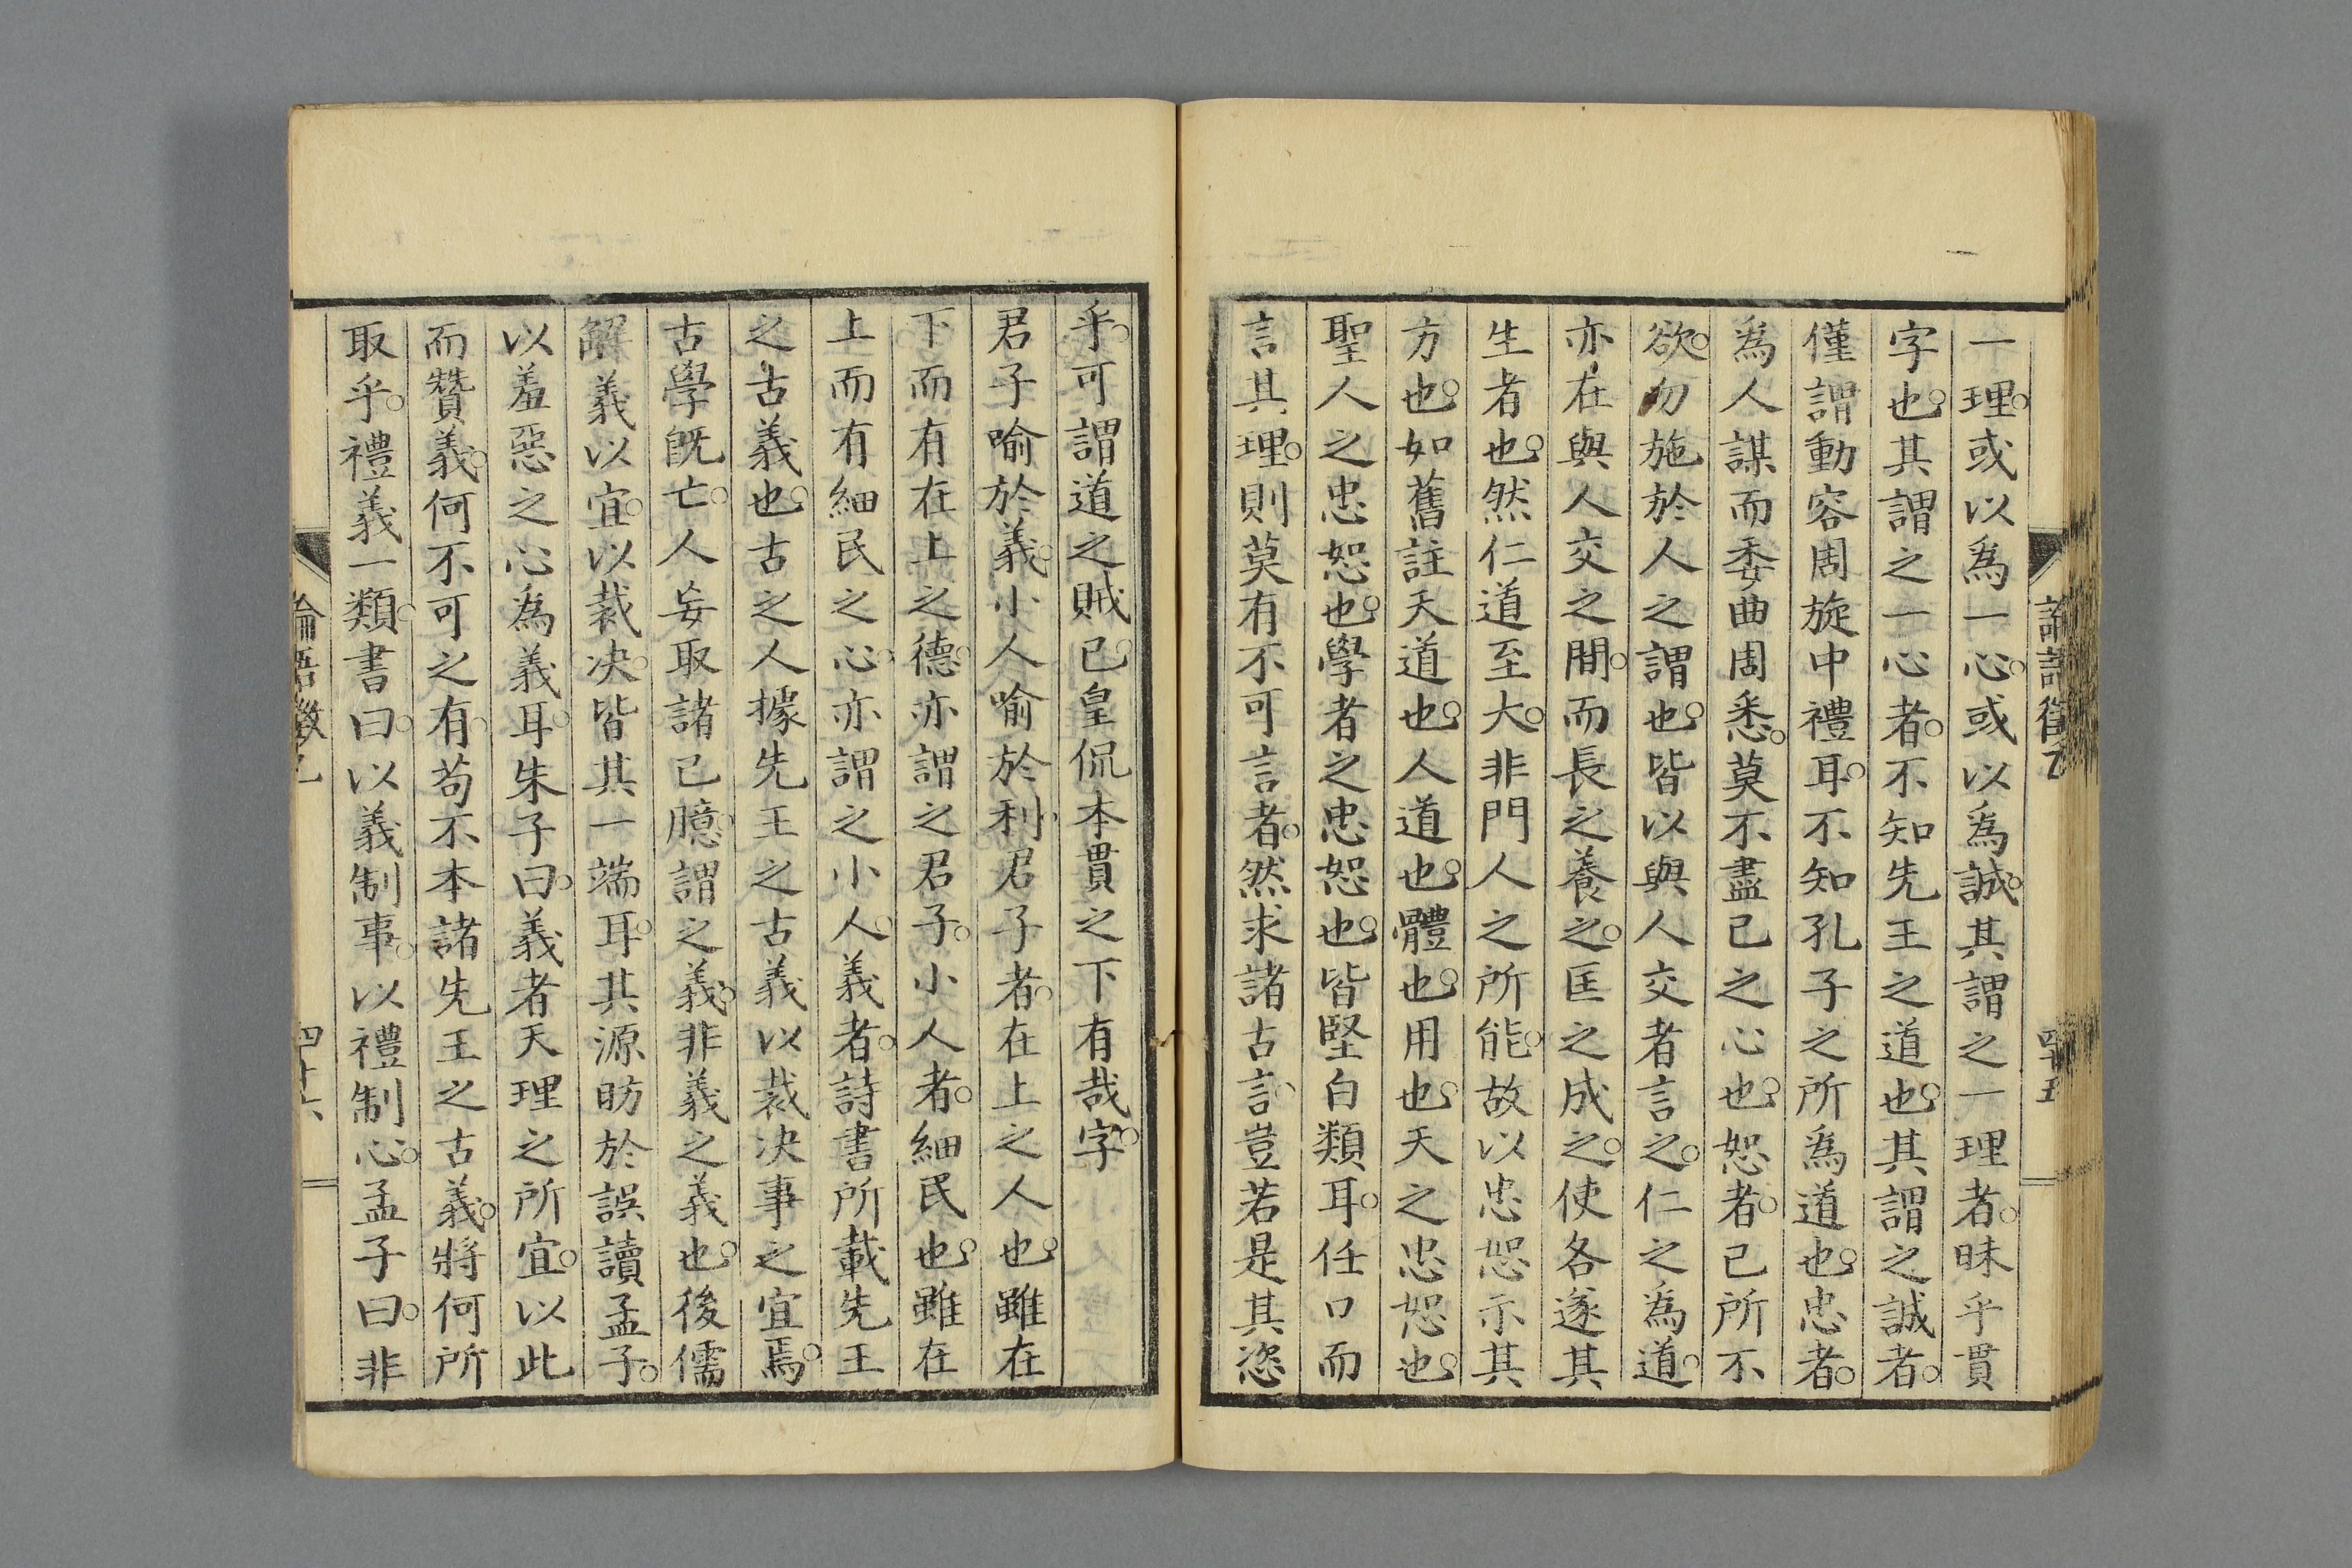 一理。或以爲一心。或以爲誠。其謂之一理者。昧乎貫
字也。其謂之一心者。不知先王之道也。其謂之誠者。
僅謂動容周旋中禮耳。不知孔子之所爲道也。忠者。
爲人謀而委曲周悉。莫不盡己之心也。恕者。己所不
欲。勿施於人之謂也。皆以與人交者言之。仁之爲道。
亦在與人交之間。而長之養之。匡之成之。使各遂其
生者也。然仁道至大。非門人之所能。故以忠恕示其
方也。如舊註天道也。人道也。體也。用也。天之忠恕也。
聖人之忠恕也。學者之忠恕也。皆堅白類耳。任口而
言其理。則莫有不可言者。然求諸古言、豈若是其恣
乎。可謂道之賊已。皇侃本貫之下有哉字。
君子喻於義。小人喻於利、君子者。在上之人也。雖在
下而有在上之德。亦謂之君子。小人者。細民也。雖在
上而有細民之心、亦謂之小人。義者。詩書所載先王
之古義也。古之人據先王之古義以裁決事之宜焉。
古學既亡。人妄取諸己臆、謂之義。非義之義也。後儒
解義以宜。以裁決。皆其一端耳。其源昉於誤讀孟子。
以羞惡之心爲義耳。朱子曰。義者天理之所宜。以此
而贊義。何不可之有。苟不本諸先王之古義。將何所
取乎。禮義一類。書曰。以義制事。以禮制心。孟子曰。非
論語徵乙
四十六